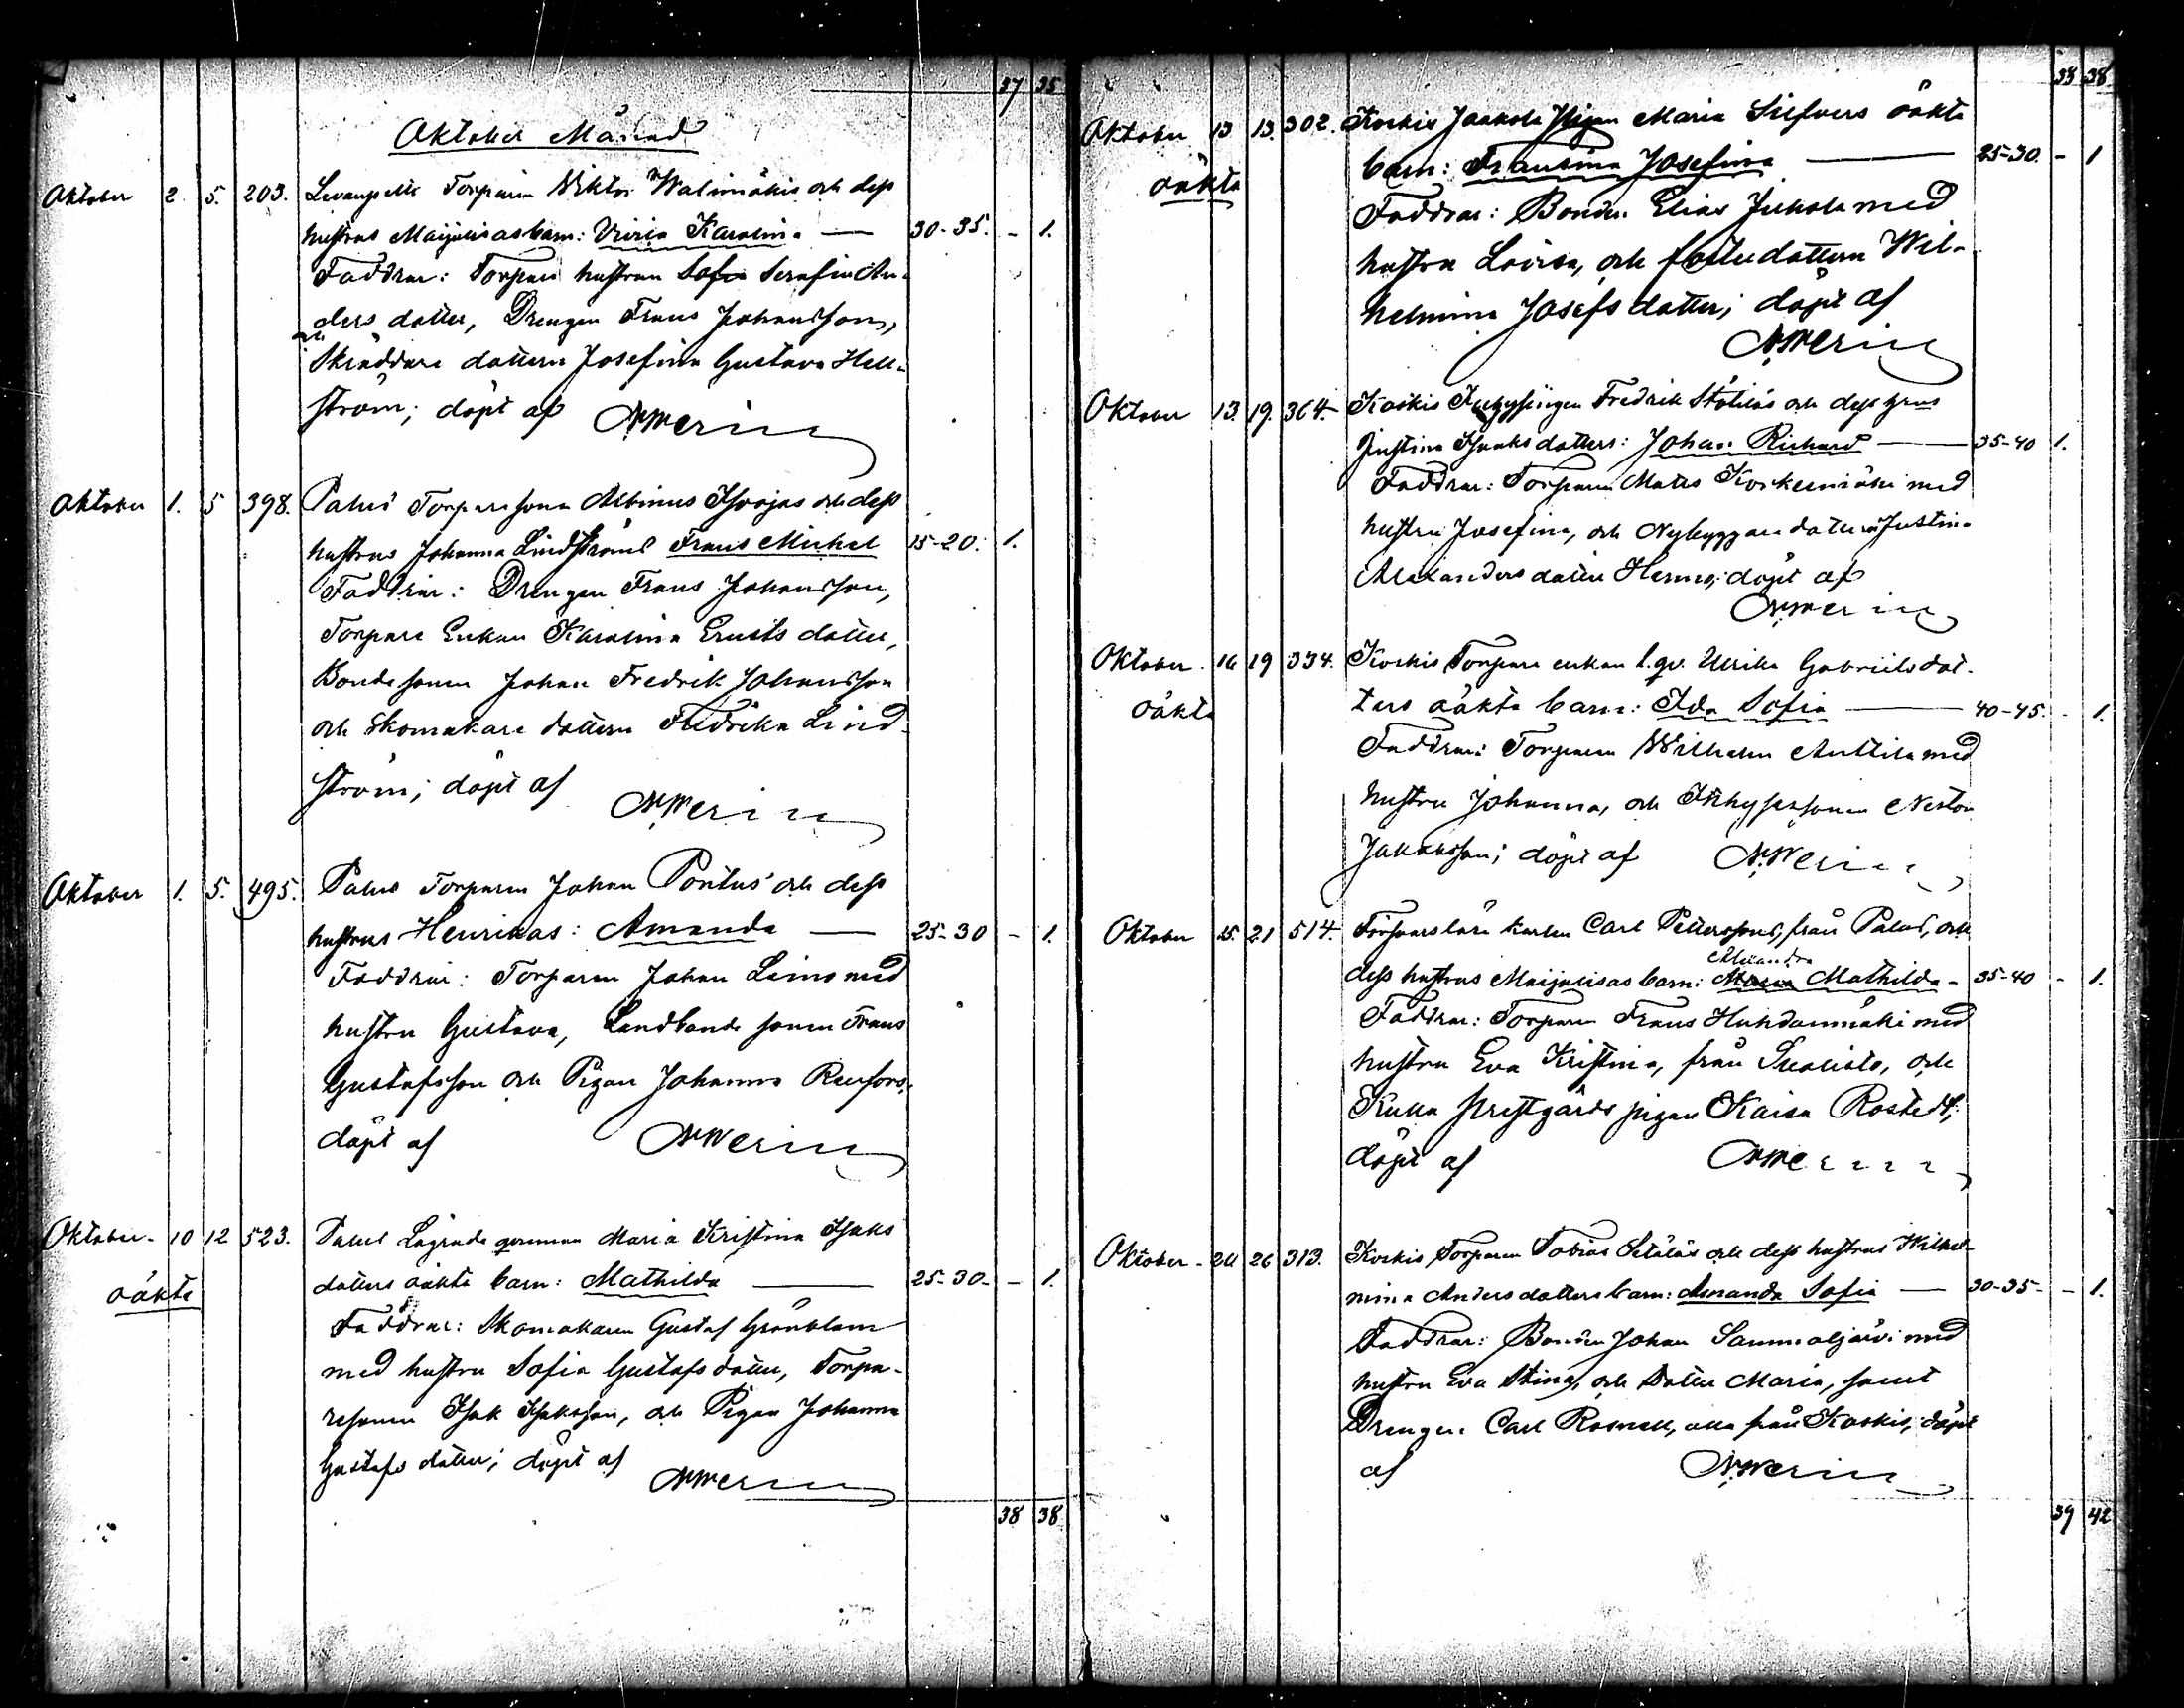 37 35
Oktober Månad
Oktober 2. 5. 203. Torparen Viktor Walimäkis och dess
hustrus Maijalisas barn: Karolina — 30-35. - 1.
Faddrar: Torpare hustrun Sofia Serafia An-
ders dotter, Drengen Frans Johansson,
och
Skräddare dottern Josefina Gustava Hell-
ström; döpt af
Oktober 1. 5 398. Palus Torparesonen Albinus och dess
hustrus Johanna Lindströms Frans Mickel 15-20. 1.
Faddrar: Drengen Frans Johansson,
Torpare Enkan Karolina Ernsts dotter,
Bondesonen Johan Fredrik Johansson
och Skomakare dottern Fredrika Lind-
ström; döpt af
Oktober 1. 5. 495. Palus Torparen Johan Pontus och dess
hustrus Henrikas: Amanda — 25-30 - 1.
Faddrar: Torparen Johan Leino med
hustru Gustava, Landbonde sonen Frans
Gustafsson och Pigan Johanna Renfors;
döpt af
Oktober - 10 12 523. Palus Lägrade qvinnan Maria Kristina Isaks
oäkta dotters oäkta barn: Mathilda — 25-30 - 1.
Faddrar: Skomakaren Gustaf Grönblom
med hustru Sofia Gustafs dotter, Torpa-
resonen Isak Isaksson, och Pigan Johanna
Gustafs dotter; döpt af
38 38
38 38
Oktober 13 13. 302. Koskis Jaakola Pigan Maria Silfvers oäkta
oäkta barn: Fransina Josefina — 25-30. - 1
Faddrar: Bonden Elias Jukola med
hustru Lovisa, och fosterdottern Wil-
helmina Josefs dotter; döpt af
Oktober 13. 19. 364. Koskis Inhysingen Fredrik och dess
Justina Isaks dotters: Johan Richard — 35-40 1.
Faddrar: Torparen Matts med
hustru Josefina, och Nybyggare dottern Justina
Alexanders dotter döpt af
Oktober 16 19 334. Koskis Torpare enkan l. qv. Ulrika Gabriels dot-
oäkta ters oäkta barn: Ida Sofia — 40-45. - 1.
Faddrar: Torparen Wilhelm Anttila med
hustru Johanna, och Inhyses sonen Nestor
Jakobsson; döpt af
Oktober 15. 21 514. karlen Carl Petterssons, från Palus, och
Alexandra
dess hustrus Maijalisas barn: Maria Mathilda - 35-40 - 1.
Faddrar: Torparen Frans Huhdanmäki med
hustru Eva Kristina, från Suolisto, och
Kulla prestgårds pigan Kaisa Rostedt;
döpt af
Oktober - 20 26 313. Koskis Torparen Tobias Setäläs och dess hustrus Wilhel-
mina Anders dotters barn: Amanda Sofia — 30-35 - - 1.
Faddrar: Bonden Johan Sammaljärvi med
hustru Eva Stina, och Dotter Maria, samt
Drengen Carl Rosnell, alla från Koskis; döpt
af
39 42